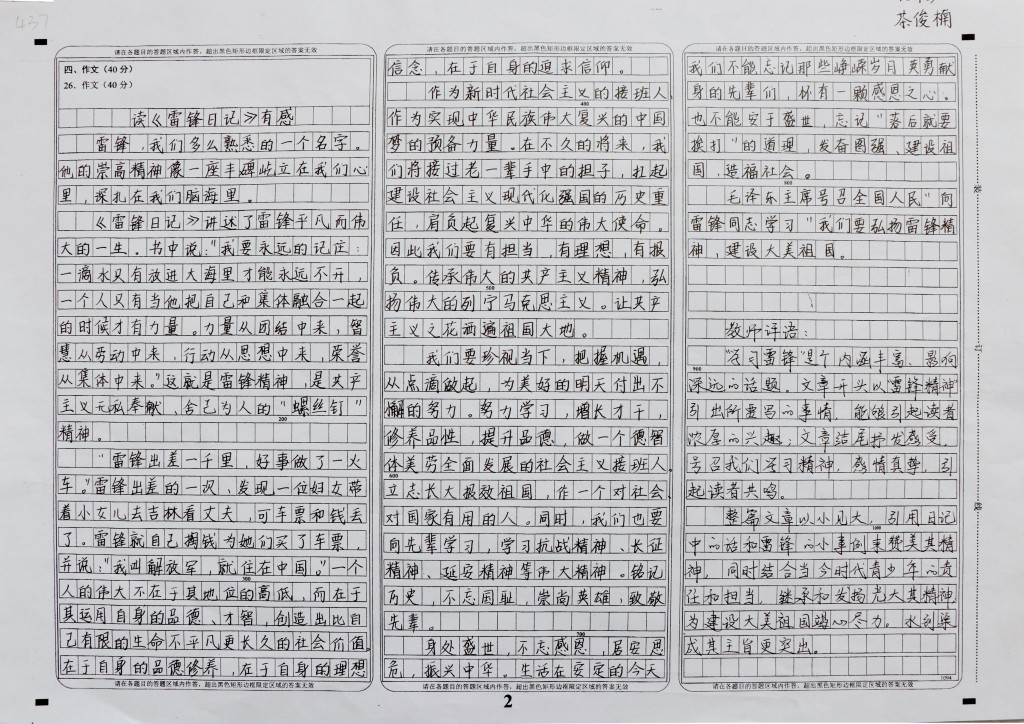 437
茶俊楠
请在各题目的答题区域内作答，超出黑色矩形边框限定区域的答案无效
四、作文（40 分）
26. 作文（40 分）
读《雷锋日记》有感
雷锋，我们多么熟悉的一个名字。
他的崇高精神像一座丰碑屹立在我们心
里，深扎在我们脑海里。
《雷锋日记》讲述了雷锋平凡而伟
大的一生。书中说："我要永远的记住：
一滴水又有放进大海里才能永远不干，
一个人又有当他把自己和集体融合一起
的时候才有力量。力量从团结中来，智
慧从劳动中来，行动从思想中来，荣誉
从集体中来。"这就是雷锋精神，是共产
主义无私奉献、舍己为人的"螺丝钉"
200
精神。
"雷锋出差一千里，好事做了一火
车。"雷锋出差的一次、发现一位妇女带
着小女儿去吉林看丈夫，可车票和钱丢
了。雷锋就自己掏钱为她们买了车票，
并说："我叫解放军，就住在中国。"一个
300
人的伟大不在于其地位的高低，而在于
其运用自身的品德、才智，创造出比自
己有限的生命不平凡更长久的社会价值。
在于自身的品德修养，在于自身的理想
请在各题目的答题区域内作答，超出黑色矩形边框限定区域的答案无效
请在各题目的答题区域内作答，超出黑色矩形边框限定区域的答案无效
信念，在于自身的追求信仰。
作为新时代社会主义的接班人，
400
作为实现中华民族伟大复兴的中国
梦的预备力量。在不久的将来，我
们将接过老一辈手中的担子，扛起
建设社会主义现代化强国的历史重
任，肩负起复兴中华的伟大使命。
因此我们要有担当，有理想，有报
负。传承伟大的共产主义精神，弘
500
扬伟大的列宁马克思主义。让共产
主义之花洒遍祖国大地。
我们要珍视当下，把握机遇，
从点滴做起，为美好的明天付出不
懈的努力。努力学习，增长才干，
修养品性，提升品德，做一个德智
体美劳全面发展的社会主义接班人。
600
立志长大报效祖国，作一个对社会
对国家有用的人。同时，我们也要
向先辈学习，学习抗战精神、长征
精神、延安精神等伟大精神。铭记
历史，不忘国耻，崇尚英雄，致敬
先辈。
700
身处盛世，不忘感恩，居安思
危，振兴中华。生活在安定的今天
请在各题目的答题区域内作答，超出黑色矩形边框限定区域的答案无效
请在各题目的答题区域内作答，超出黑色矩形边框限定区域的答案无效
我们不能忘记那些峥嵘岁月英勇献
身的先辈们，怀有一颗感恩之心。
也不能安于盛世，忘记"落后就要
挨打"的道理，发奋图强、建设祖
国，造福社会。
800
毛泽东主席号召全国人民"向
雷锋同志学习"我们要弘扬雷锋精
神，建设大美祖国。
教师评语：
"学习雷锋"是个内涵丰富、影响
900
深远的话题。文章开头以"雷锋精神"
引出所要写的事情，能够引起读者
浓厚的兴趣；文章结尾抒发感受，
号召我们学习精神，感情真挚，引
起读者共鸣。
整篇文章以小见大，引用日记
1000
中的话和雷锋的小事例来赞美其精
神，同时结合当今时代青少年的责
任和担当，继承和发扬光大其精神，
为建设大美祖国竭心尽力。水到渠
成其主旨更突出。
1094
请在各题目的答题区域内作答，超出黑色矩形边框限定区域的答案无效
装
订
线
2